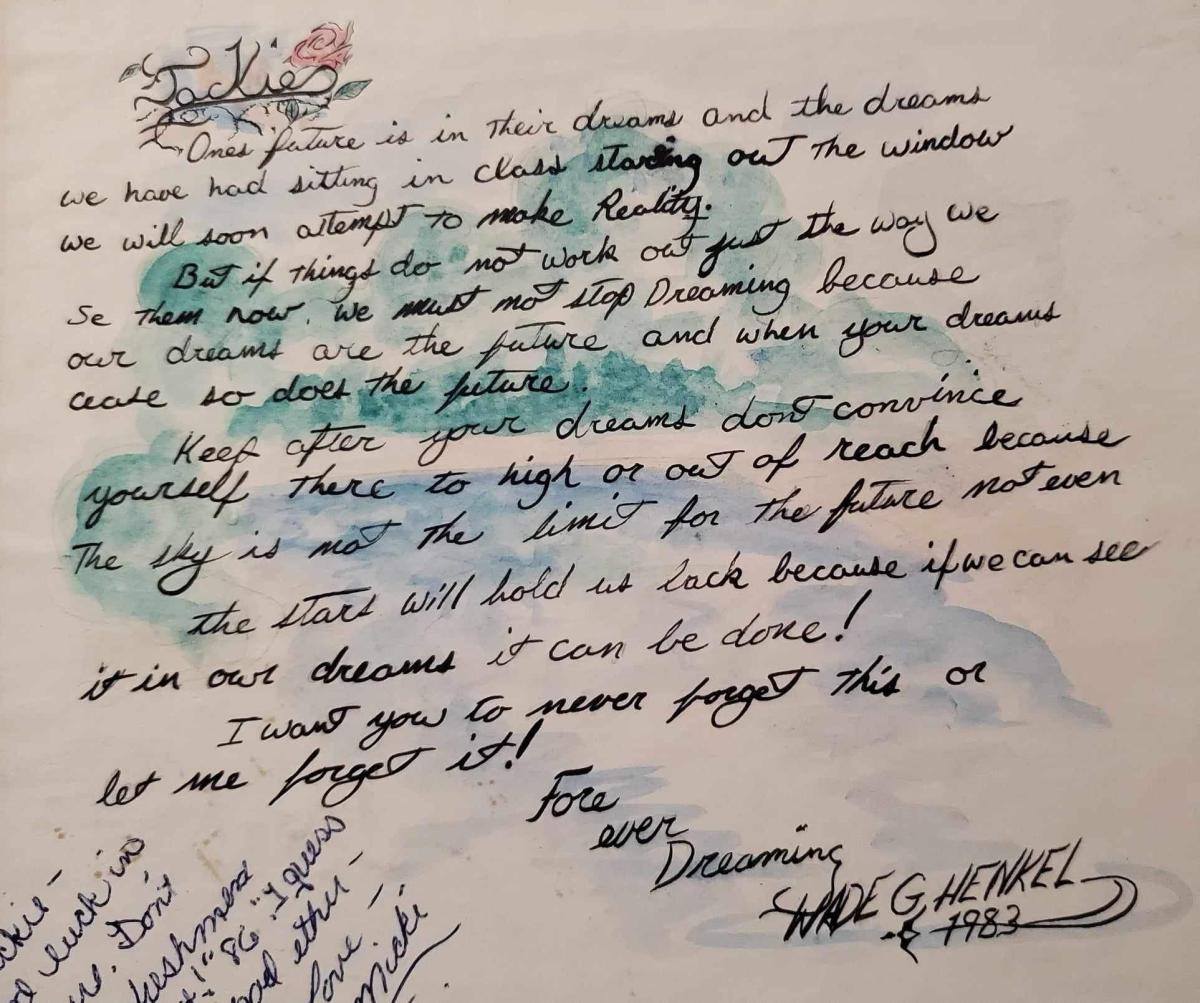 Jackie
Ones future is in their dreams and the dreams
we have had sitting in class staring out the window
we will soon attempt to make Reality.
But if things do not work out just the way we
Se them now. we must not stop Dreaming because
our dreams are the future and when your dreams
cease so does the future.
Keep after your dreams dont convince
yourself there to high or out of reach because
The sky is not the limit for the future not even
the stars will hold us back because if we can see
it in our dreams it can be done!
I want you to never forget this or
let me forget it!
Fore
ever
Dreaming
WADE G. HENKEL
1983
luck in
Don't
"86" I guess
love -
Micki